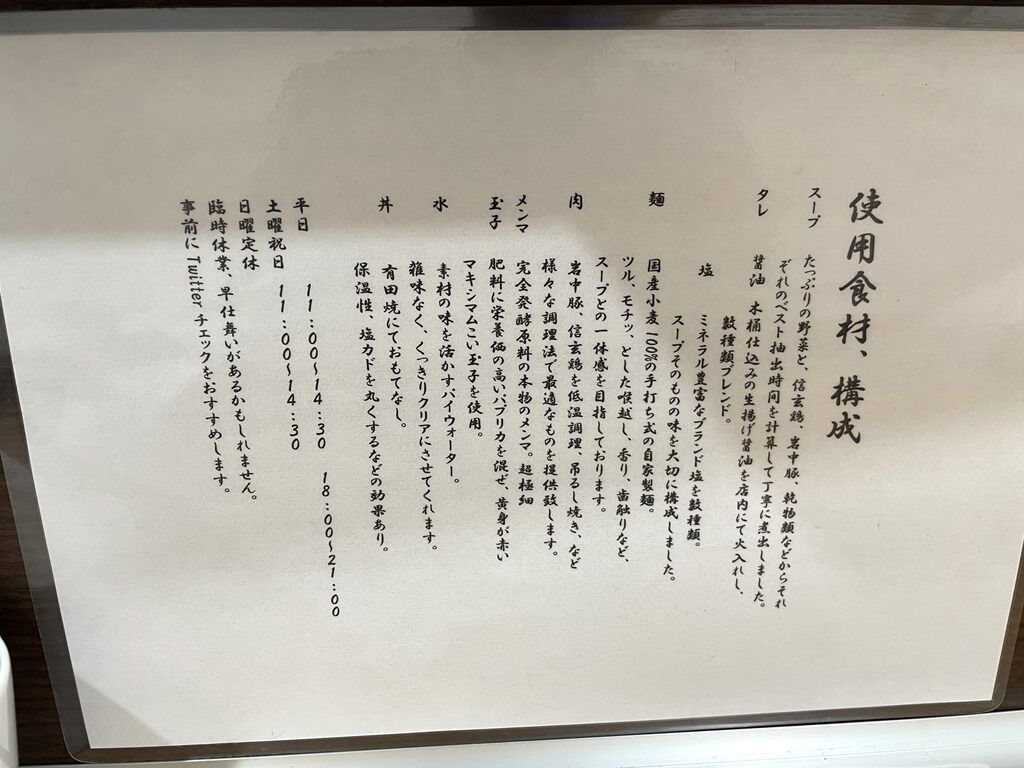 使用食材、構成
スープ　たっぷりの野菜と、信玄鶏、岩中豚、乾物類などからそれ
ぞれのベスト抽出時間を計算して丁寧に煮出しました。
タレ　醤油　木桶仕込みの生揚げ醤油を店内にて火入れし、
数種類ブレンド。
塩　ミネラル豊富なブランド塩を数種類。
スープそのものの味を大切に構成しました。
麺　国産小麦100%の手打ち式の自家製麺。
ツル、モチッ、とした喉越し、香り、歯触りなど、
スープとの一体感を目指しております。
肉　岩中豚、信玄鶏を低温調理、吊るし焼き、など
様々な調理法で最適なものを提供致します。
メンマ　完全発酵原料の本物のメンマ。超極細
玉子　肥料に栄養価の高いパプリカを混ぜ、黄身が赤い
マキシマムこい玉子を使用。
水　素材の味を活かすパイウォーター。
雑味なく、くっきりクリアにさせてくれます。
丼　有田焼にておもてなし。
保温性、塩カドを丸くするなどの効果あり。
平日　11:00~14:30　18:00~21:00
土曜祝日　11:00~14:30
日曜定休
臨時休業、早仕舞いがあるかもしれません。
事前にTwitterチェックをおすすめします。